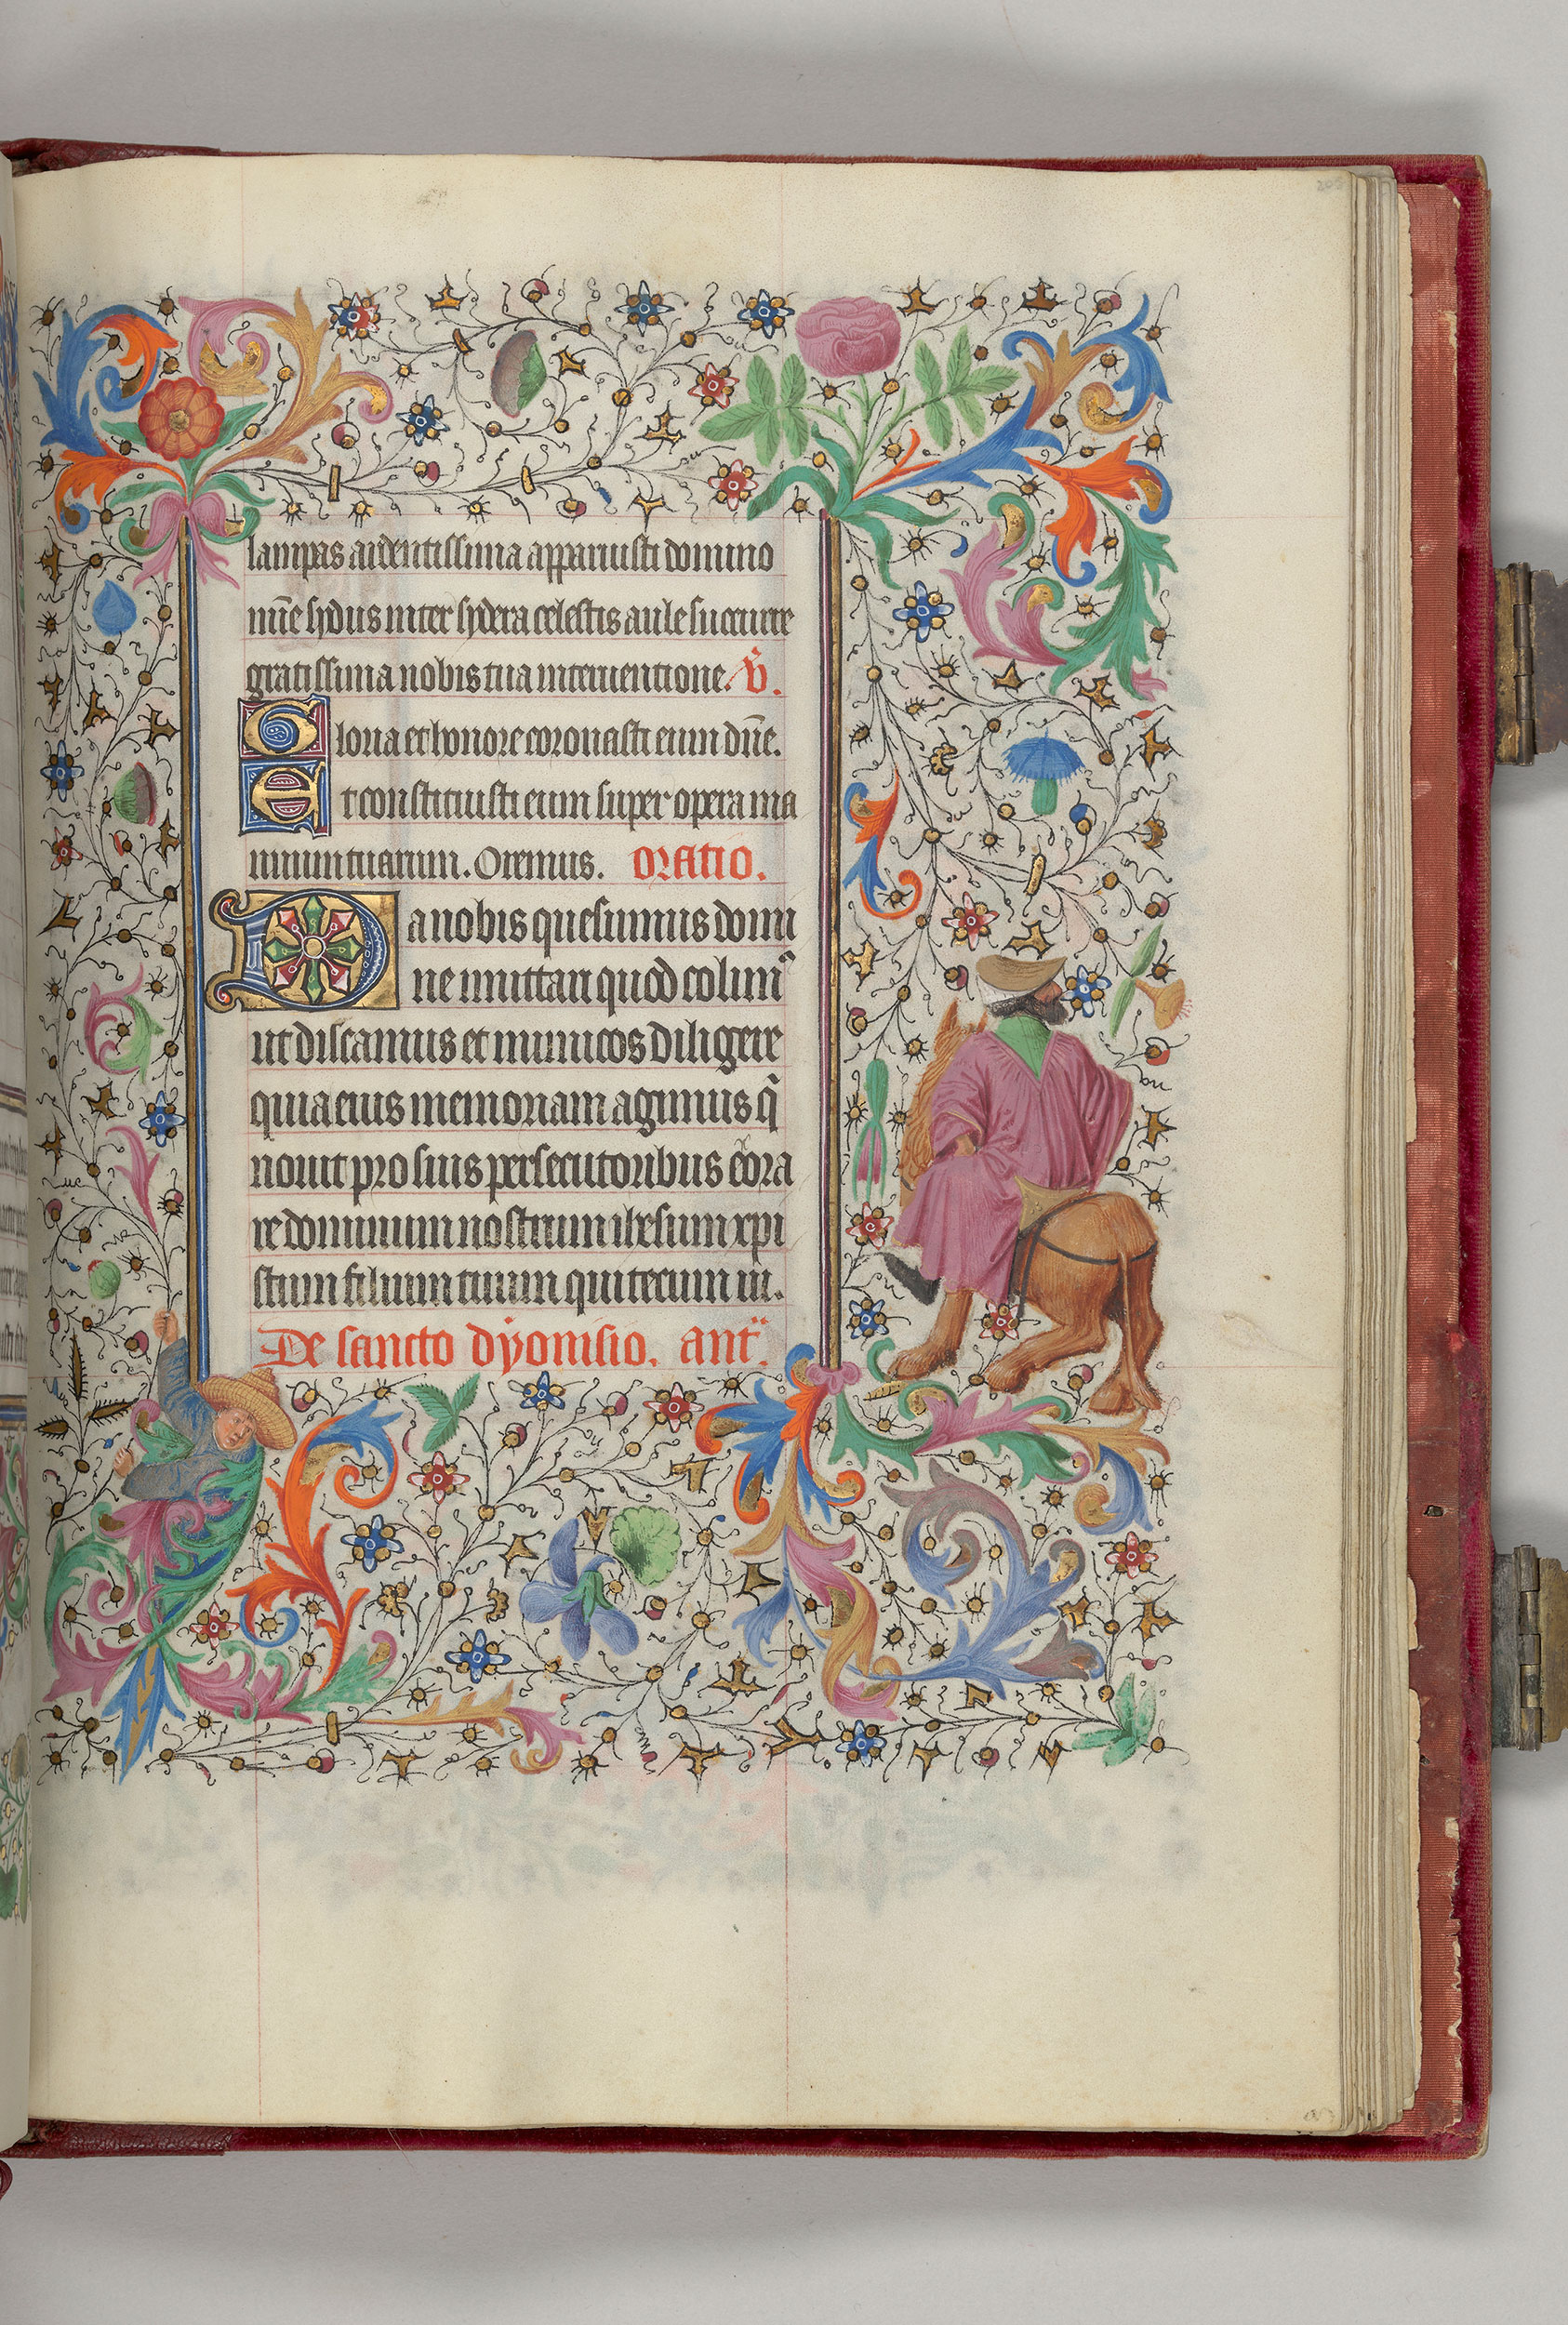 lampas ardentissima apparuisti domino
mīe sydus inter sydera celestis aule succurre
gratissima nobis tua interuentione. V̄.
Gloria et honore coronasti eum dn̄e.
Et constituisti eum super opera ma
nuum tuarum. Oremus. Oratio.
Da nobis quesumus domi
ne imittari quod colimꝰ
ut discamus et inimicos diligere
quia eius memoriam agimus q̄
nouit pro suis persecutoribus exora
re dominum nostrum ihesum xpi
stum filium tuum qui tecum ui.
De sancto dyonisio. ant̄.